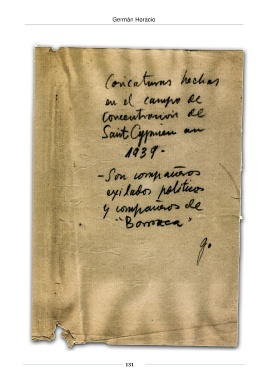 Germán Horacio
Caricaturas hechas
en el campo de
concentración de
Saint Cyprien en
1939-
-Son compañeros
exilados políticos
y compañeros de
"Barraca"
g.
131